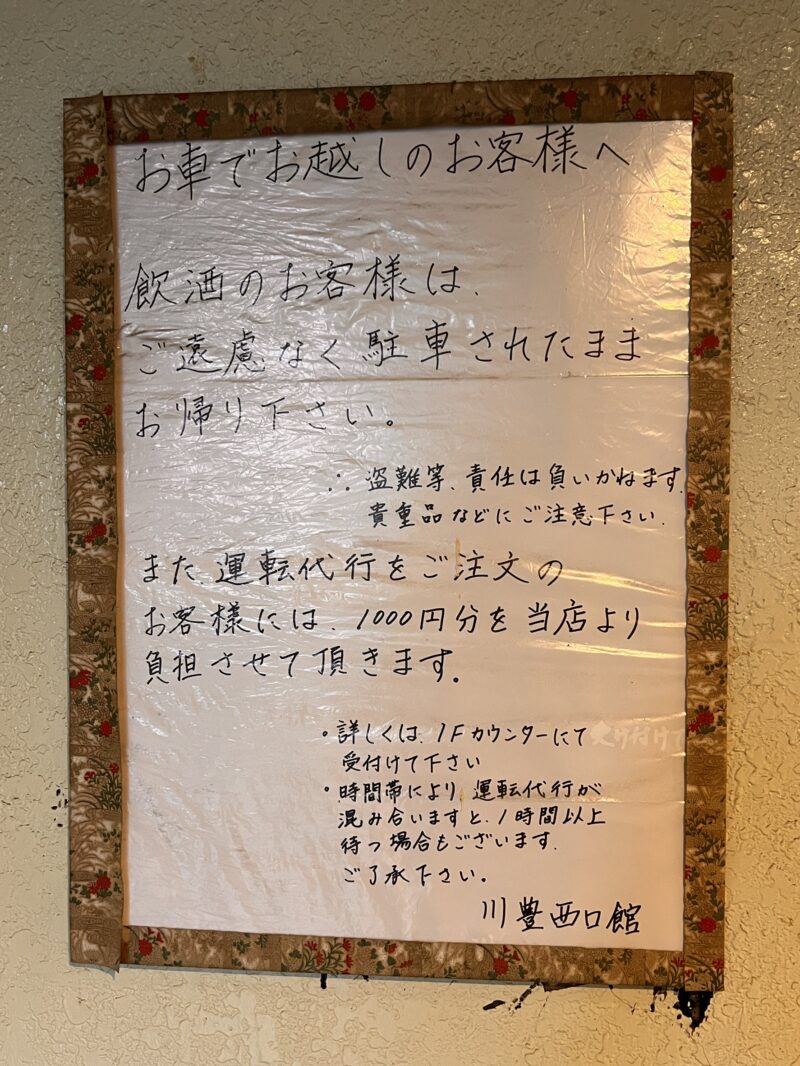 お車でお越しのお客様へ
飲酒のお客様は、
ご遠慮なく駐車されたまま
お帰り下さい。
∴ 盗難等、責任は負いかねます。
貴重品などにご注意下さい。
また、運転代行をご注文の
お客様には、1000円分を当店より
負担させて頂きます。
・詳しくは、1Fカウンターにて
受付けて下さい
・時間帯により、運転代行が
混み合いますと、1時間以上
待つ場合もございます。
ご了承下さい。
川豊西口館